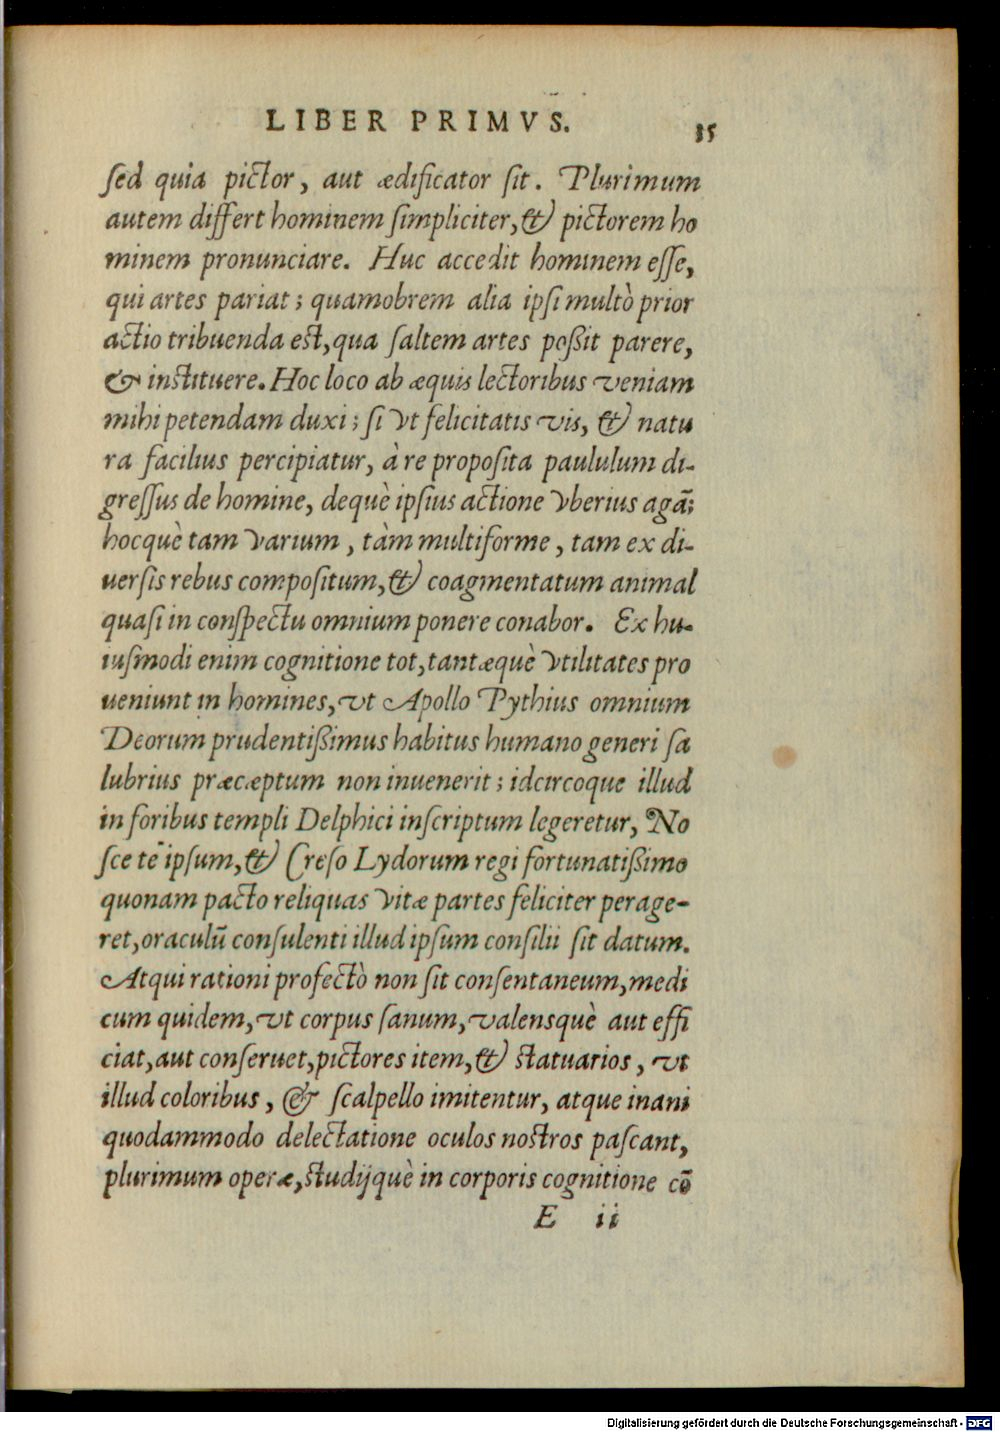 LIBER PRIMVS. 35
sed quia pictor, aut ædificator sit. Plurimum
autem differt hominem simpliciter, & pictorem ho
minem pronunciare. Huc accedit hominem esse,
qui artes pariat; quamobrem alia ipsi multò prior
actio tribuenda est, qua saltem artes poßit parere,
& instituere. Hoc loco ab æquis lectoribus veniam
mihi petendam duxi; si vt felicitatis vis, & natu
ra facilius percipiatur, à re proposita paululum di-
gressus de homine, dequè ipsius actione vberius agã;
hocquè tam varium, tàm multiforme, tam ex di-
uersis rebus compositum, & coagmentatum animal
quasi in conspectu omnium ponere conabor. Ex hu-
iusmodi enim cognitione tot, tantæquè vtilitates pro
ueniunt in homines, vt Apollo Pythius omnium
Deorum prudentißimus habitus humano generi sa
lubrius præcæptum non inuenerit; idcircoque illud
in foribus templi Delphici inscriptum legeretur, No
sce te ipsum, & Creso Lydorum regi fortunatißimo
quonam pacto reliquas vitæ partes feliciter perage-
ret, oraculũ consulenti illud ipsum consilii sit datum.
Atqui rationi profectò non sit consentaneum, medi
cum quidem, vt corpus sanum, valensquè aut effi
ciat, aut conseruet, pictores item, & statuarios, vt
illud coloribus, & scalpello imitentur, atque inani
quodammodo delectatione oculos nostros pascant,
plurimum operæ, studijquè in corporis cognitione cõ
E ii
Digitalisierung gefördert durch die Deutsche Forschungsgemeinschaft - DFG